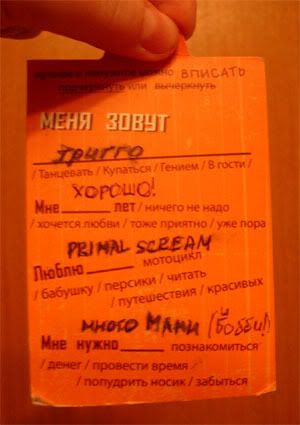 нужное и ненужное можно ВПИСАТЬ
подчеркнуть или вычеркнуть
МЕНЯ ЗОВУТ
Григго
/ Танцевать / Купаться / Гением / В гости /
ХОРОШО!
Мне ______ лет / ничего не надо
/ хочется любви / тоже приятно / уже пора
PRIMAL SCREAM
Люблю ______ мотоцикл
/ бабушку / персики / читать
/ путешествия / красивых
МНОГО МАНИ (и бобби!)
Мне нужно ______ познакомиться
/ денег / провести время /
/ попудрить носик / забыться